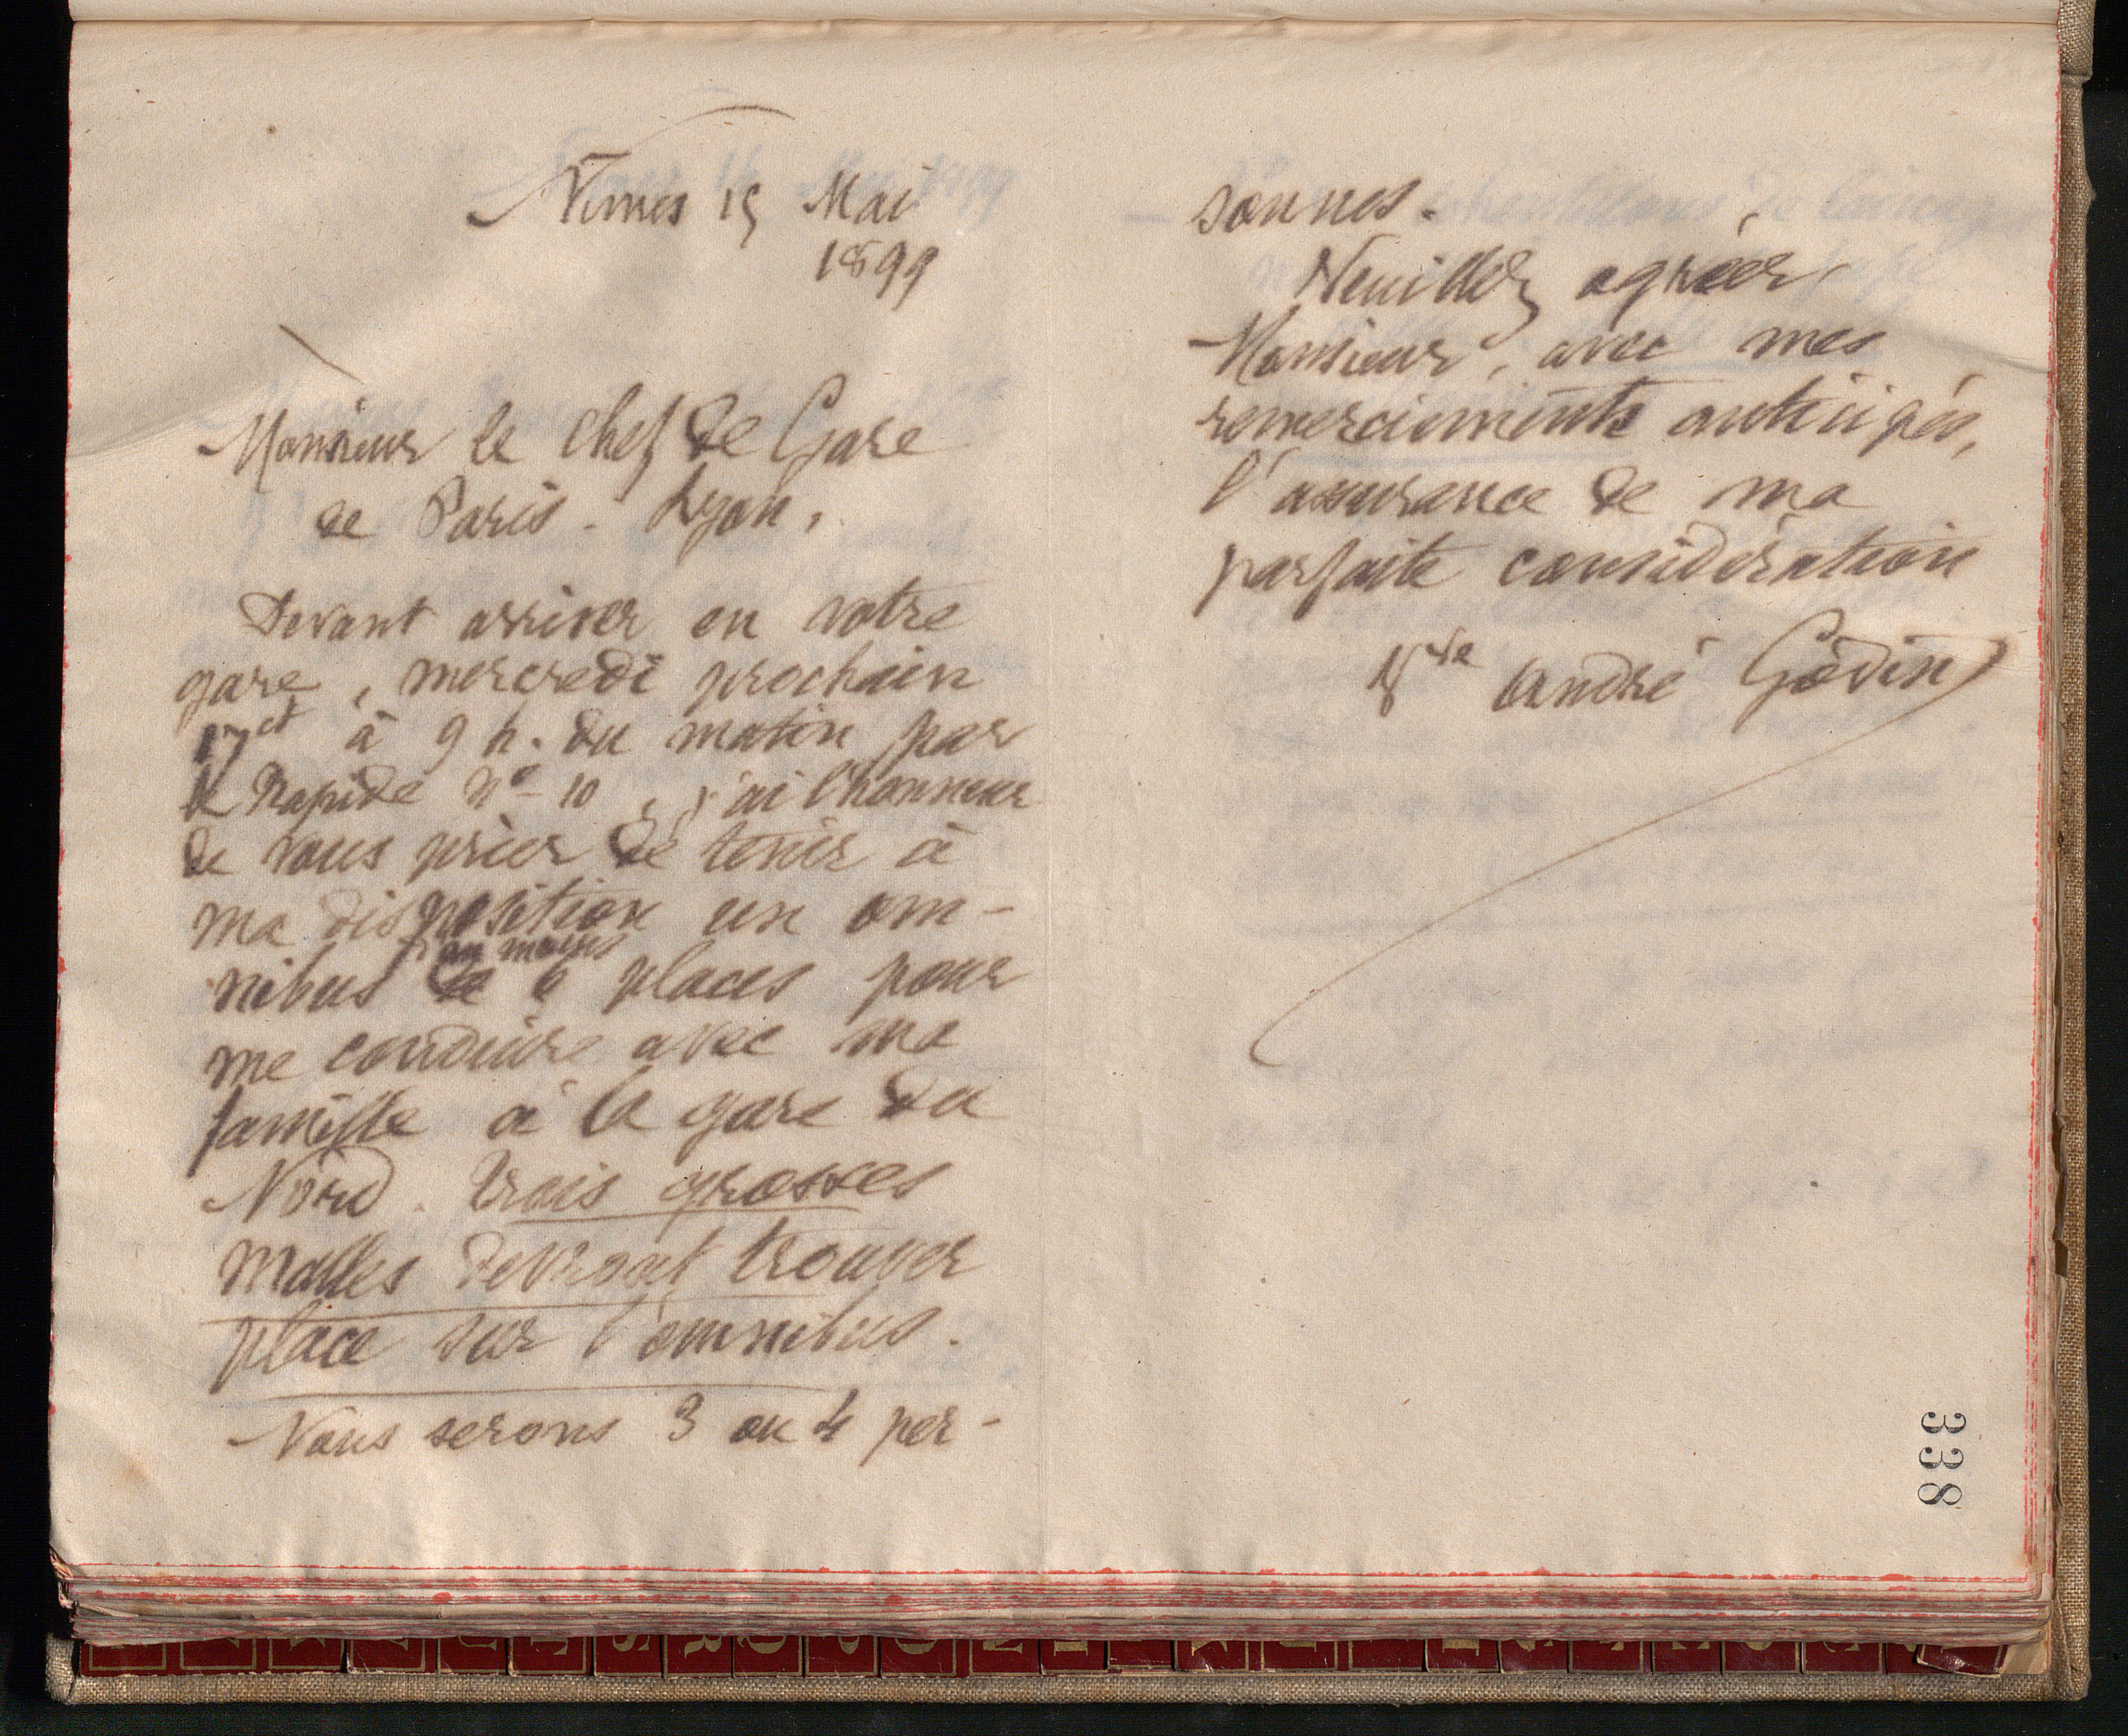 Nîmes 15 Mai
1899
Monsieur le Chef de Gare
de Paris-Lyon,
Devant arriver en votre
gare, mercredi prochain
17 ct à 9 h. du matin par
le Rapide No 10, j'ai l'honneur
de vous prier de tenir à
ma disposition un om-
au moins
nibus de 6 places pour
me conduire avec ma
famille à la gare du
Nord. Trois grosses
malles devront trouver
place sur l'omnibus.
Nous serons 3 ou 4 per-
sonnes.
Veuillez agréer,
Monsieur, avec mes
remerciements anticipés,
l'assurance de ma
parfaite considération
Vve André Godin
338